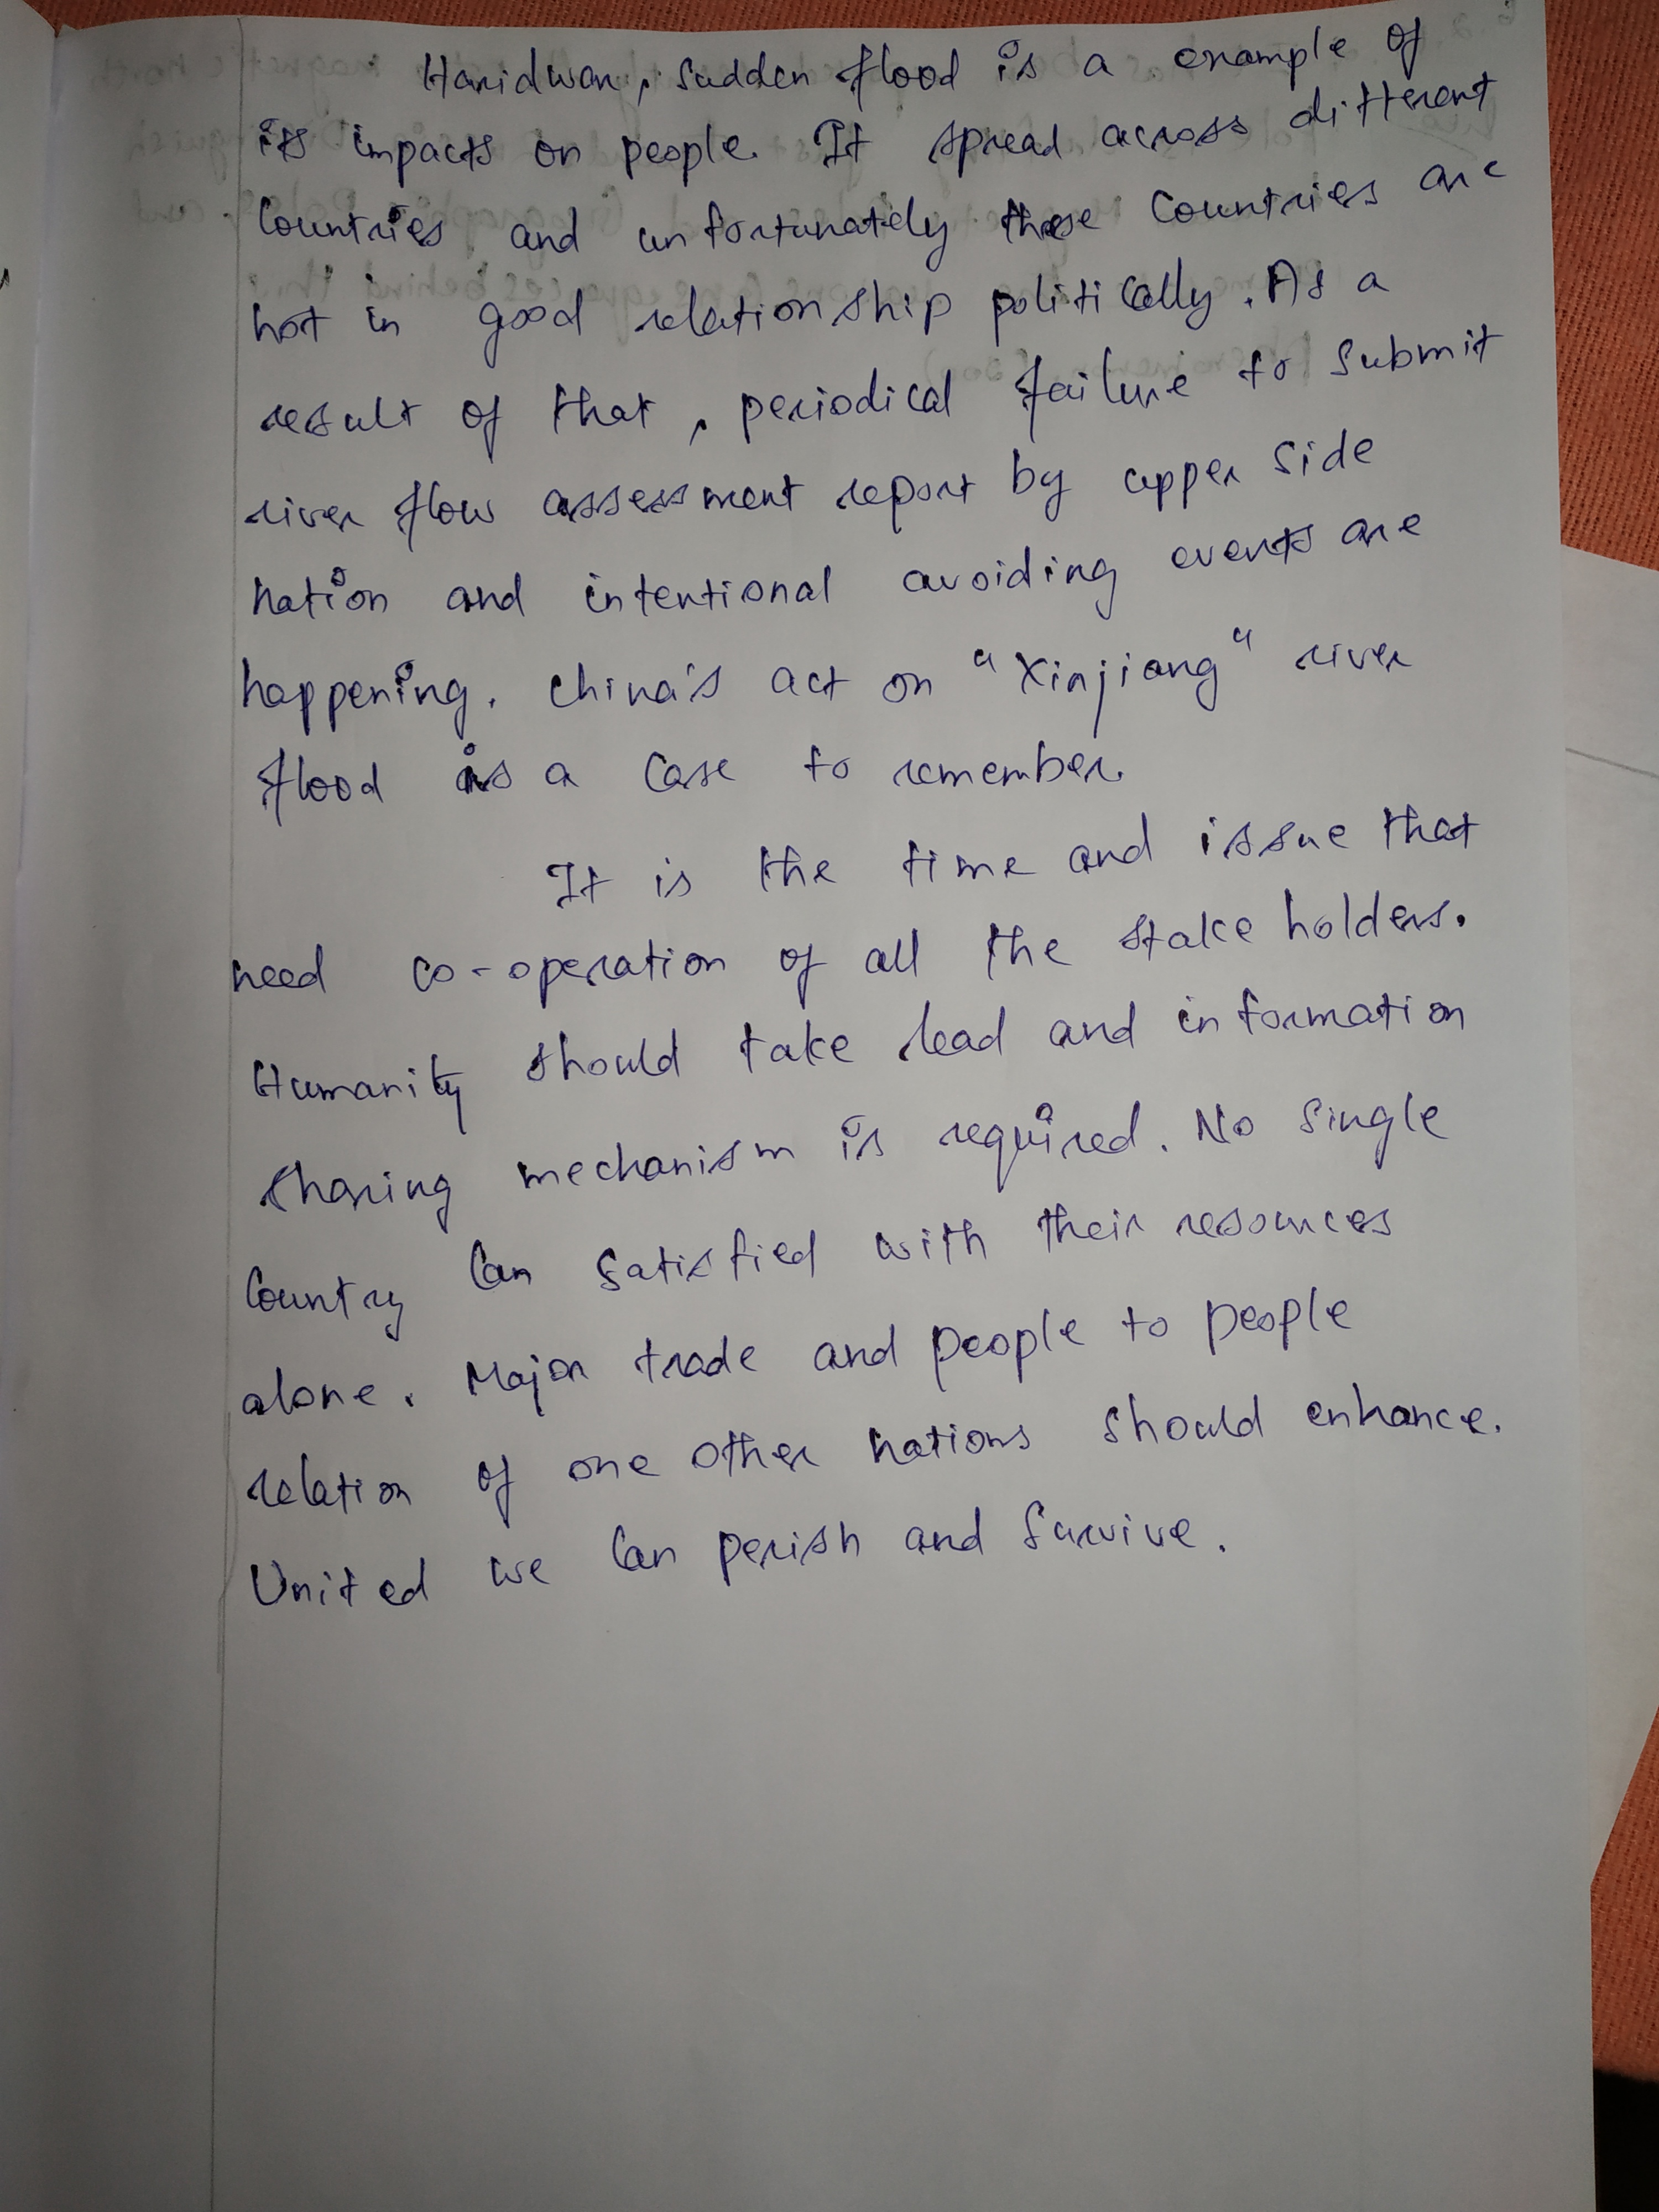 Haridwar, sudden flood is a example of
its impacts on people. It spread across different
countries and unfortunately these countries are
not in good relationship politically. As a
result of that, periodical failure to submit
river flow assessment report by upper side
nation and intentional avoiding events are
happening. China's act on "Xinjiang" river
flood is a case to remember.
It is the time and issue that
need co-operation of all the stake holders.
Humanity should take lead and information
sharing mechanism is required. No single
country can satisfied with their resources
alone. Major trade and people to people
relation of one other nations should enhance.
United we can perish and survive.